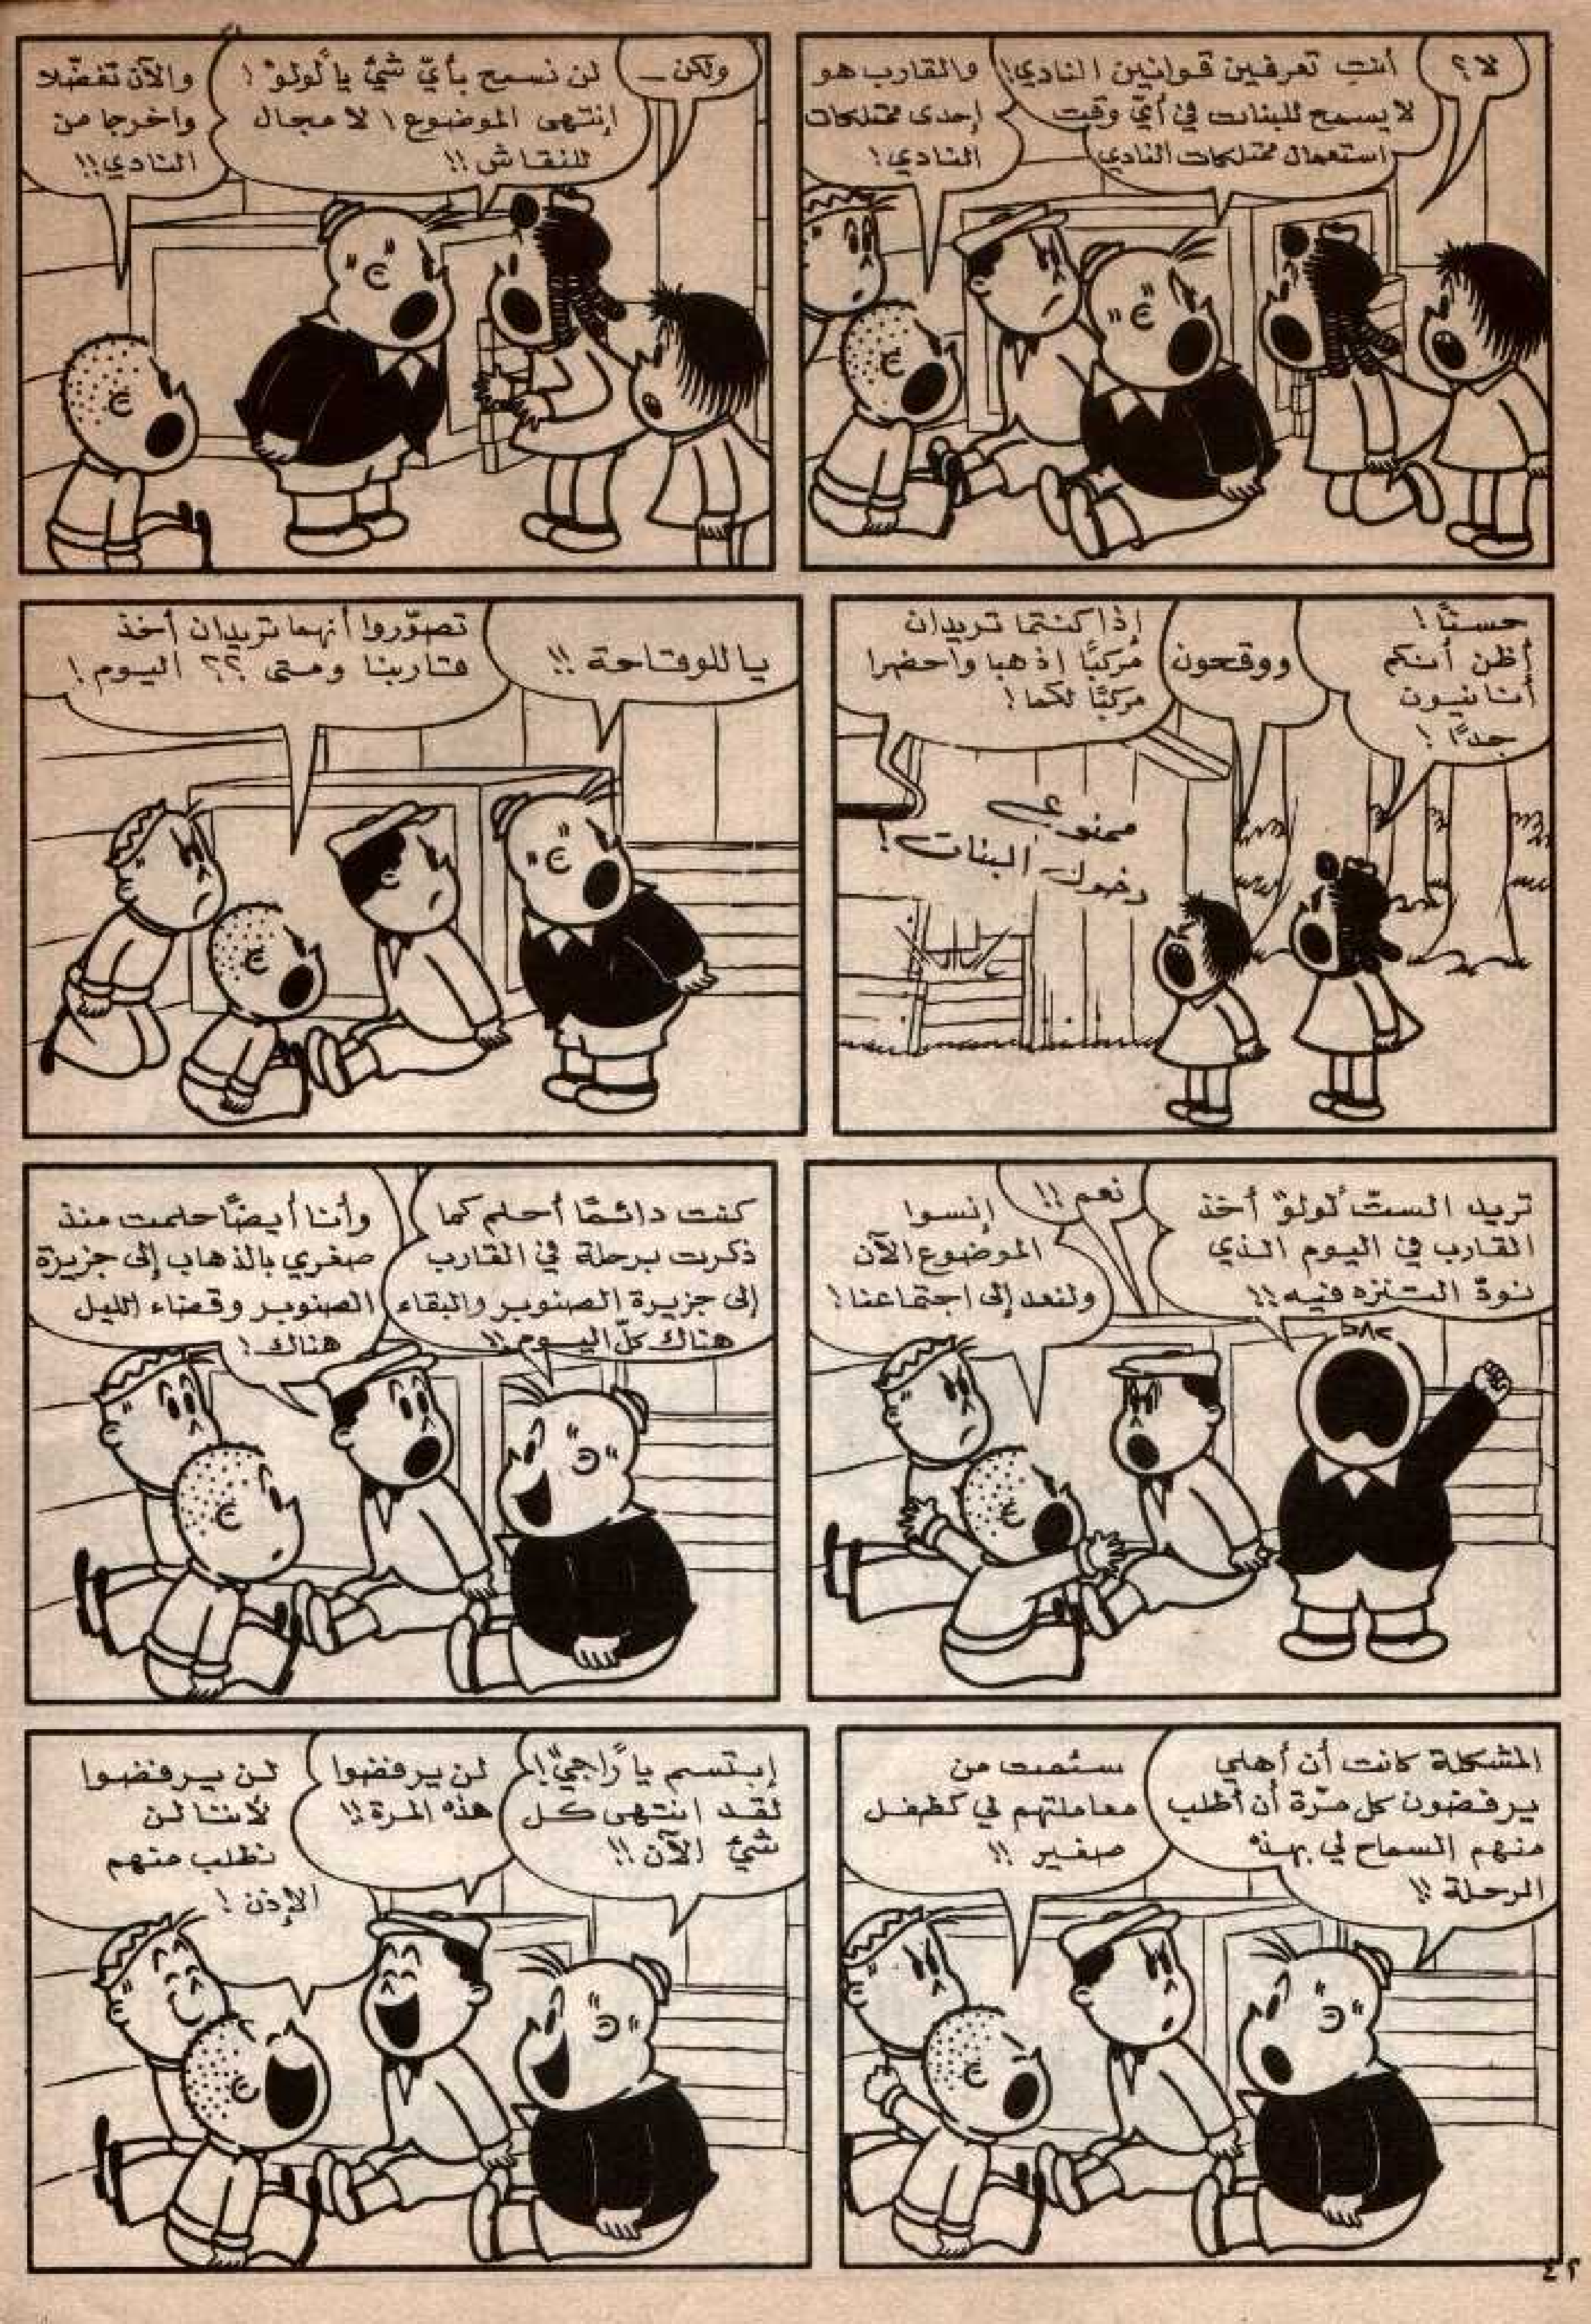 لا؟
أنتِ تعرفين قوانين النادي!
لا يسمح للبنات في أيّ وقت
استعمال ممتلكات النادي
والقارب هو
إحدى ممتلكات
النادي!
ولكن ــ
لن نسمح بأيّ شيءٍ يا "لولو"!
إنتهى الموضوع! لا مجال
للنقاش!!
والآن تفضّلا
واخرجا من
النادي!!
حسنًا!
أظن أنكم
أنانيون
جدًا!
ووقحون
إذا كنتما تريدان
مركبًا إذهبا واحضرا
مركبًا لكما!
ممنوع
دخول البنات!
يا للوقاحة!!
تصوّروا أنهما تريدان أخذ
قاربنا ومتى؟؟ اليوم!
تريد الستّ "لولو" أخذ
القارب في اليوم الذي
نودّ التنزه فيه!!
نعم!!
إنسوا
الموضوع الآن
ولنعد إلى اجتماعنا!
كنت دائمًا أحلم كما
ذكرت برحلة في القارب
إلى جزيرة الصنوبر والبقاء
هناك كلّ اليوم!!
وأنا أيضًا حلمت منذ
صغري بالذهاب إلى جزيرة
الصنوبر وقضاء الليل
هناك!
المشكلة كانت أن أهلي
يرفضون كل مرّة أن أطلب
منهم السماح لي بهذه
الرحلة!!
سئمت من
معاملتهم لي كطفل
صغير!!
إبتسم يا "راجي"!
لقد انتهى كل
شيءٍ الآن!!
لن يرفضوا
هذه المرة!!
لن يرفضوا
لأننا لن
نطلب منهم
الإذن!
٤٢